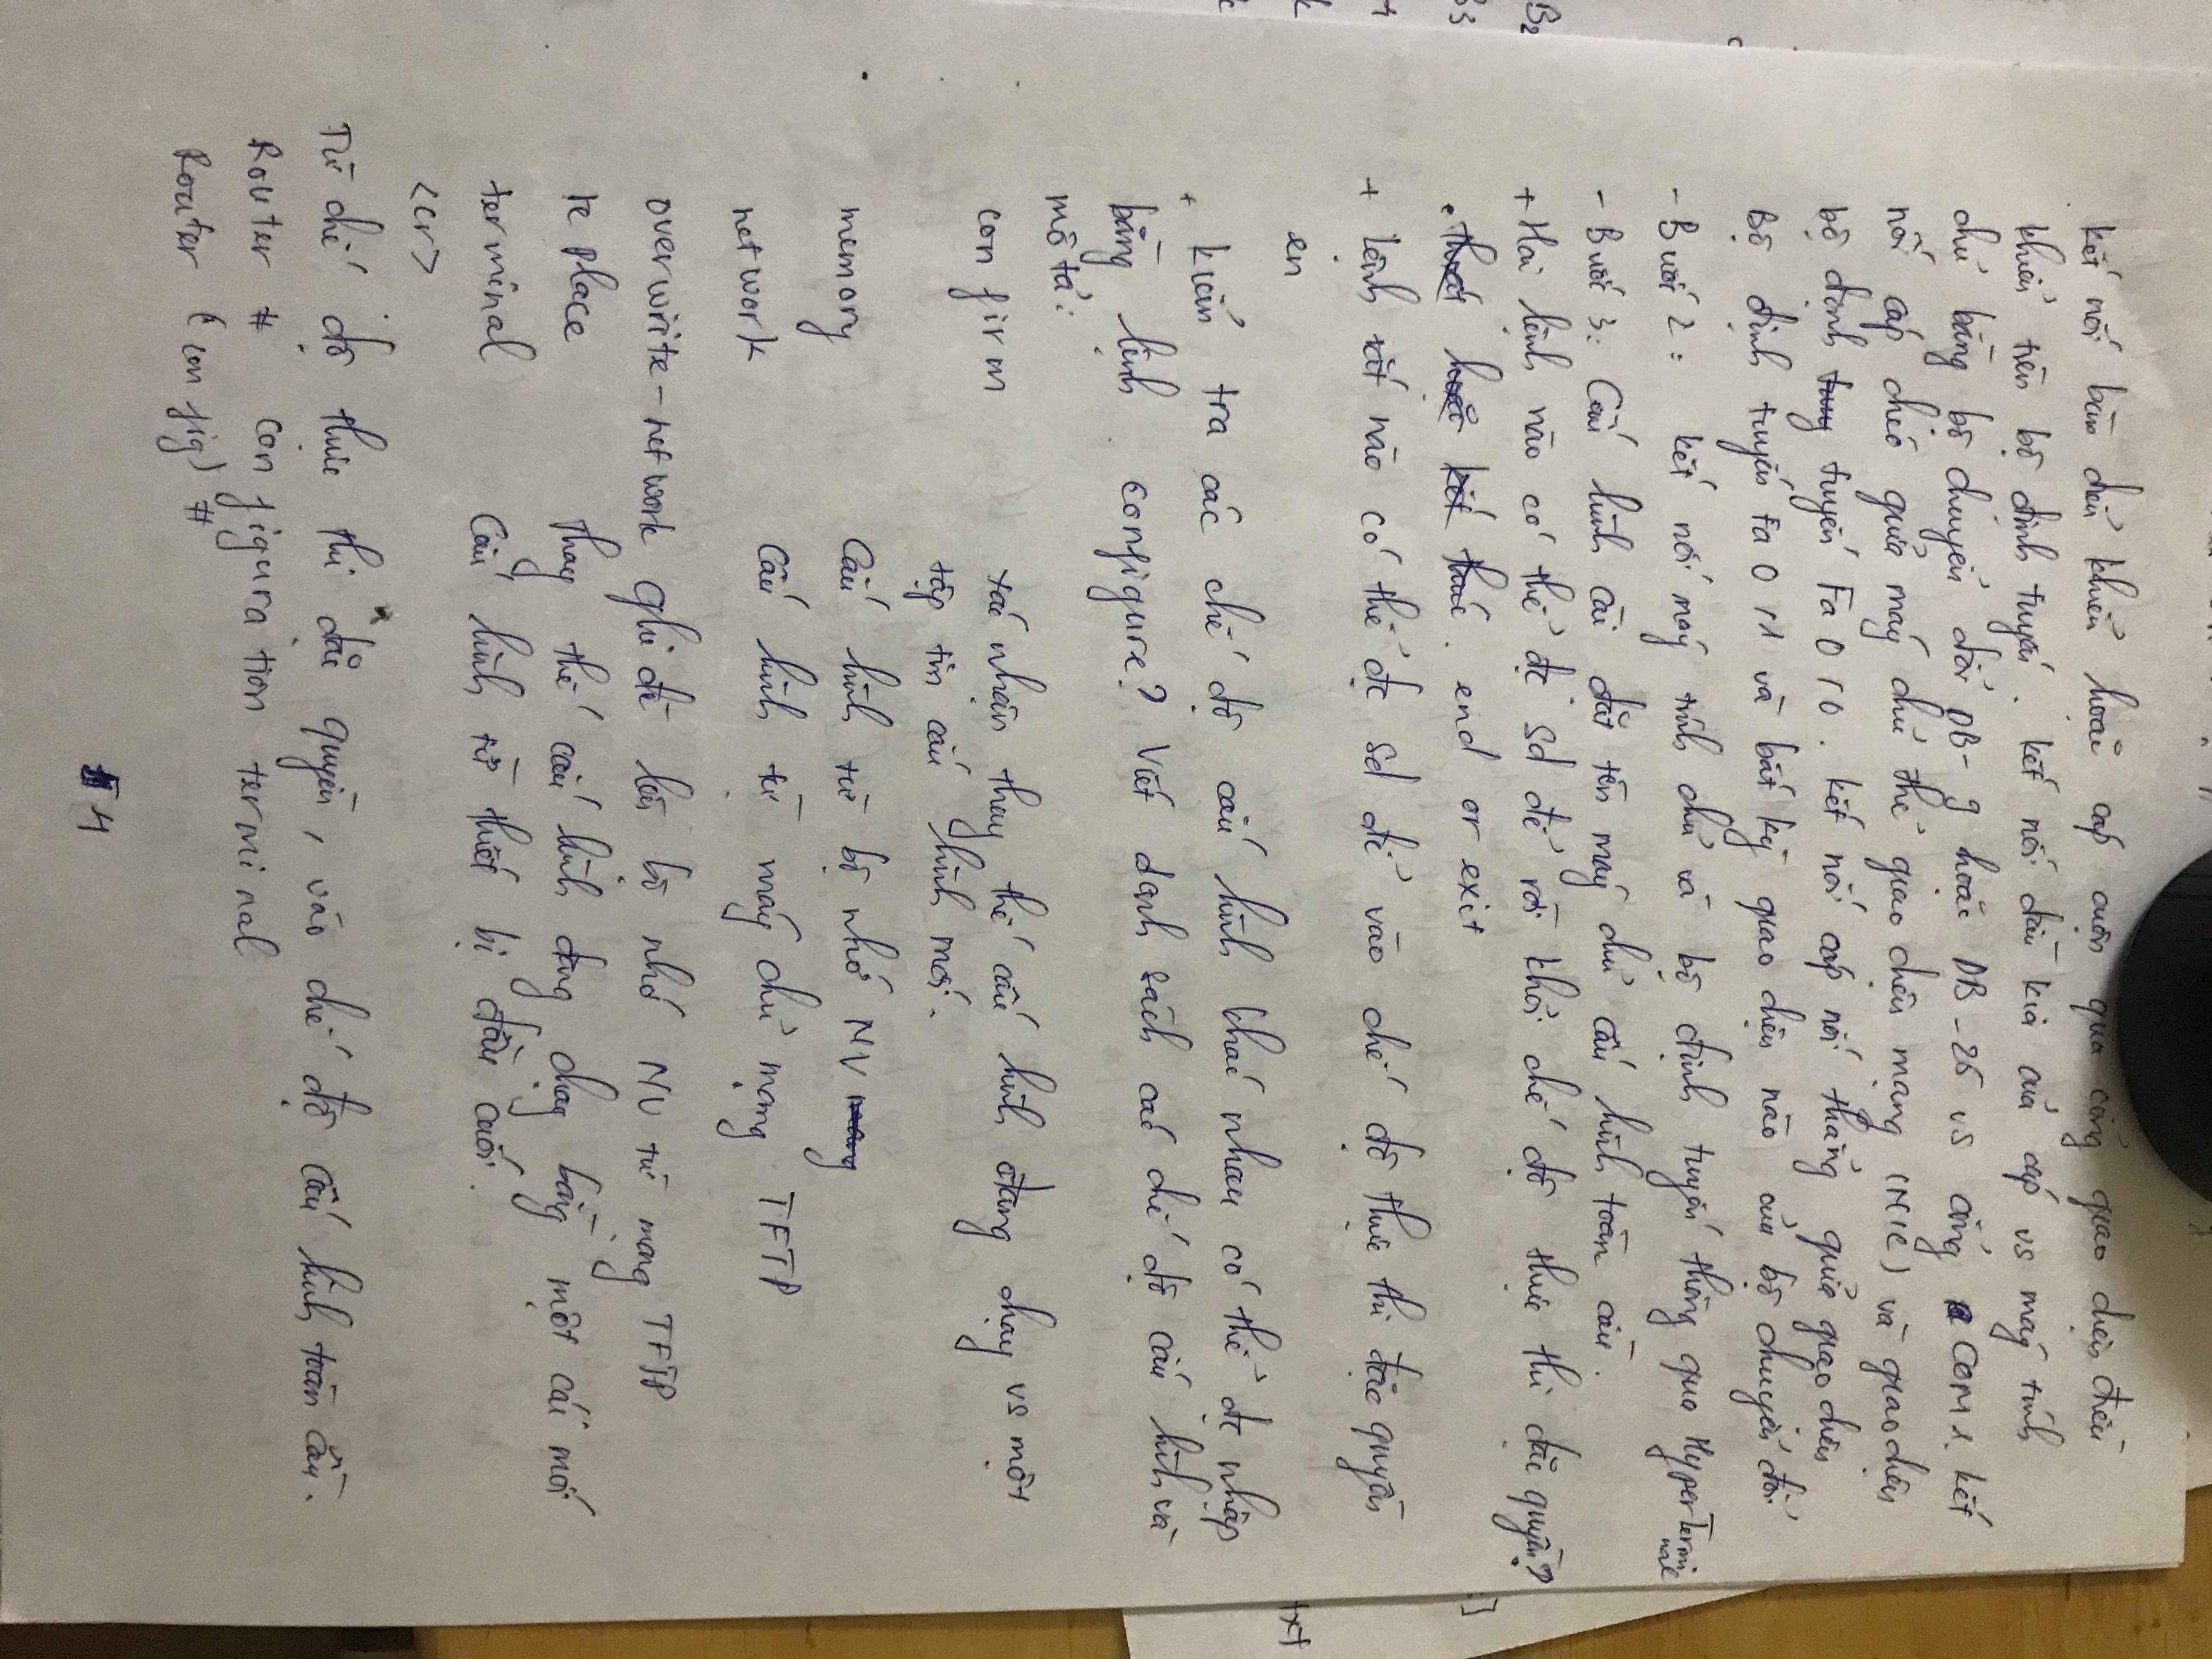 kết nối bàn điều khiển hoặc cáp cuộn qua cổng giao diện điều
khiển trên bộ định tuyến. kết nối đầu kia của cáp vs máy tính
chủ bằng bộ chuyển đổi DB-9 hoặc DB-25 vs cổng COM1. kết
nối cáp chéo giữa máy chủ thẻ giao diện mạng (NIC) và giao diện
bộ định tuyến Fa 0/0. kết nối cáp nối thẳng giữa giao diện
Bộ định tuyến Fa 0/1 và bất kỳ giao diện nào của bộ chuyển đổi
- Bước 2: kết nối máy tính chủ và bộ định tuyến thông qua HyperTerminal
- Bước 3: Cấu hình cài đặt tên máy chủ cấu hình toàn cầu.
+ Hai lệnh nào có thể đc sd để rời khỏi chế độ thực thi đặc quyền?
. thoát hoặc kết thúc. end or exit
+ Lệnh tắt nào có thể đc sd để vào chế độ thực thi đặc quyền
en
+ kiểm tra các chế độ cấu hình khác nhau có thể đc nhập
bằng lệnh configure? Viết danh sách các chế độ cấu hình và
mô tả:
confirm xác nhận thay thế cấu hình đang chạy vs một
tập tin cấu hình mới.
memory Cấu hình từ bộ nhớ NV mang
network Cấu hình từ máy chủ mạng TFTP
overwrite-network ghi đè lên bộ nhớ NV từ mạng TFTP
replace Thay thế cấu hình đang chạy bằng một cái mới
terminal Cấu hình từ thiết bị đầu cuối.
<cr>
Từ chế độ thực thi đặc quyền, vào chế độ cấu hình toàn cầu.
Router # configuration terminal
Router (config) #
4